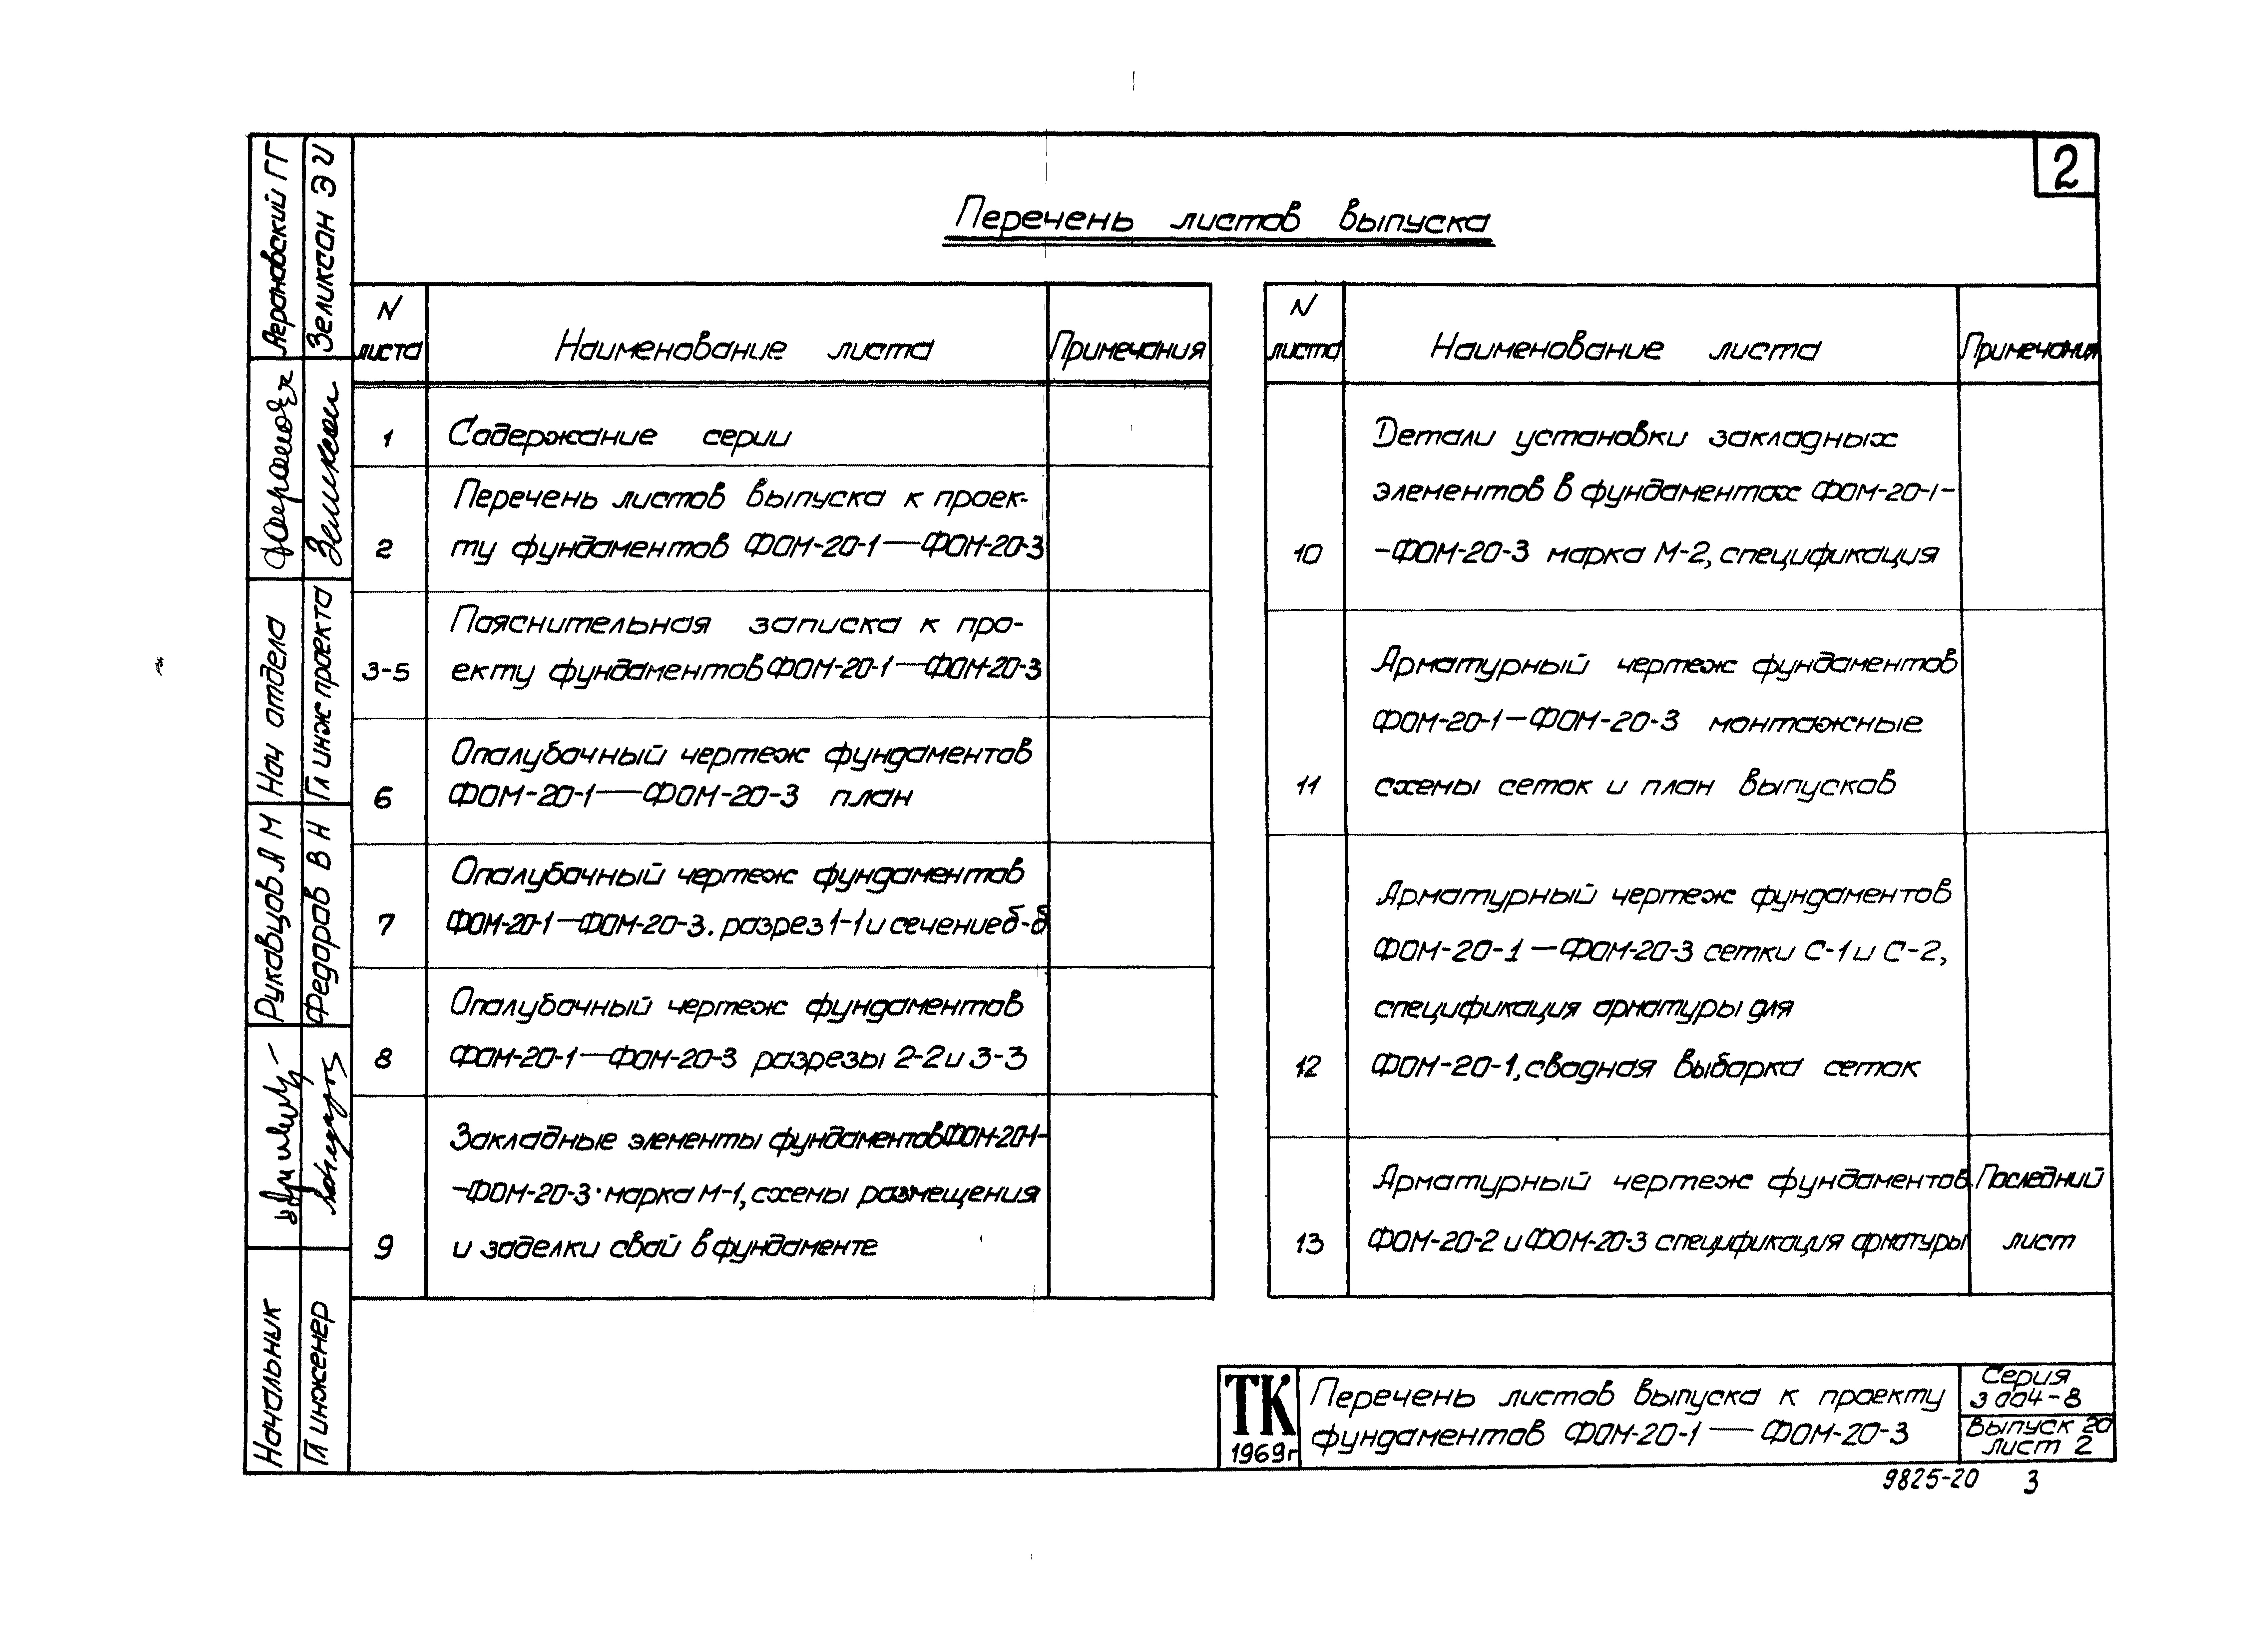 2
Перечень листов выпуска
N листа
Наименование листа
Примечания
1
Содержание серии
2
Перечень листов выпуска к проек-
ту фундаментов ФОМ-20-1—ФОМ-20-3
3-5
Пояснительная записка к про-
екту фундаментов ФОМ-20-1—ФОМ-20-3
6
Опалубочный чертеж фундаментов
ФОМ-20-1—ФОМ-20-3 план
7
Опалубочный чертеж фундаментов
ФОМ-20-1—ФОМ-20-3. разрез 1-1 и сечение б-б
8
Опалубочный чертеж фундаментов
ФОМ-20-1—ФОМ-20-3 разрезы 2-2 и 3-3
9
Закладные элементы фундаментов ФОМ-20-1-
-ФОМ-20-3. марка М-1, схемы размещения
и заделки свай в фундаменте
N листа
Наименование листа
Примечания
10
Детали установки закладных
элементов в фундаментах ФОМ-20-1-
-ФОМ-20-3 марка М-2, спецификация
11
Арматурный чертеж фундаментов
ФОМ-20-1—ФОМ-20-3 монтажные
схемы сеток и план выпусков
12
Арматурный чертеж фундаментов
ФОМ-20-1—ФОМ-20-3 сетки С-1 и С-2,
спецификация арматуры для
ФОМ-20-1, сводная выборка сеток
13
Арматурный чертеж фундаментов
ФОМ-20-2 и ФОМ-20-3 спецификация арматуры
Последний
лист
ТК
1969г
Перечень листов выпуска к проекту
фундаментов ФОМ-20-1 — ФОМ-20-3
Серия
3 004-8
Выпуск 20
Лист 2
9825-20 3
Начальник
Рукавцов А М
Нач отдела
Аграновский ГГ
Гл инженер
Федоров В Н
Гл инж проекта
Зеликсон Э И